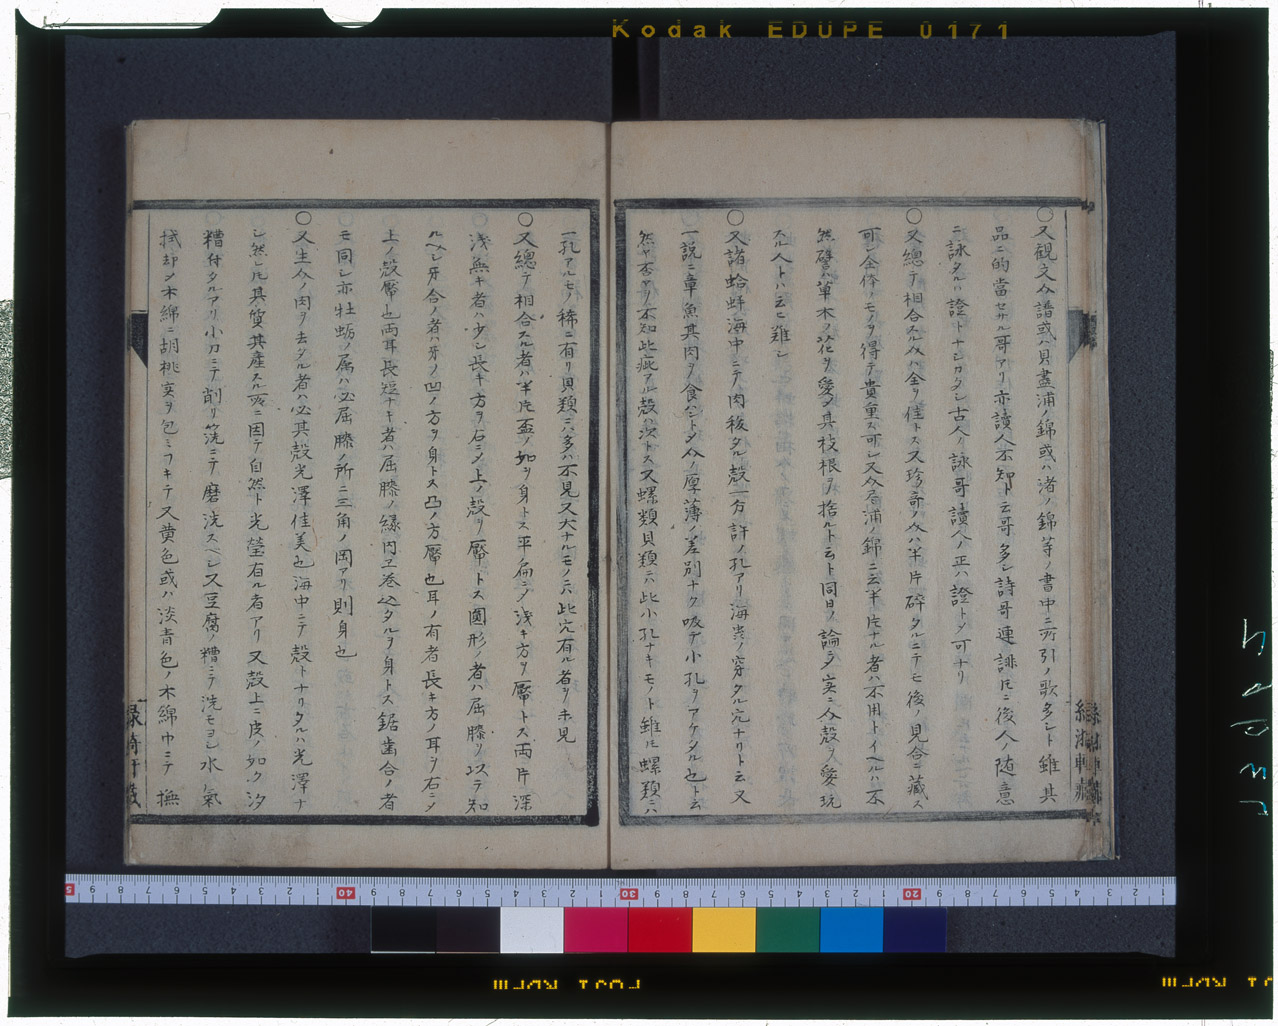 Kodak EDUPE 0171
○又観文介譜或ハ貝盡浦ノ錦或ハ渚ノ錦等ノ書中ニ所引ノ歌多シト雖其
品ニ的當セサル哥アリ亦讀人不知ト云哥多シ詩哥連誹圧ニ後人ノ随意
ニ詠タルハ證トナシカタシ古人ノ詠哥讀人ノ正ハ證トシ可ナリ
○又總テ相合スル介ハ全ヲ佳トス又珍奇ノ介ハ半片碎タルニテモ後ノ見合ニ藏ス
可シ全体ノモノヲ得テ貴重ス可シ又今浦ノ錦ニ云半片ナル者ハ不用トイヘルハ不
然譬ハ草木ノ花ヲ愛シ其枝根ヲ捨ルト云ト同日ノ論ラシ実ニ介殻ヲ愛玩
スル人トハ云ヒ難シ
○又諸蛤蚌海中ニテ肉後タル殻一方許ノ孔アリ海虫ノ穿タル穴ナリト云又
一説ニ章魚其肉ヲ食ハントシ介ノ厚薄ノ差別ナク吸テ小孔ヲアケタル也ト云
然ヤ否ヤヲ不知此疵アル殻ハ次トス又螺類貝類ニハ此小孔ナキモノト雖圧螺類ニハ
一孔アルモノ稀ニ有リ貝類ニハ多ハ不見又大ナルモノニハ此穴有ル者ヲ未見
○又總テ相合スル者ハ半片盃ノ如ヲ身トス平扁ニシ浅キ方ヲ靨トス両片深
浅無キ者ハ少シ長キ方ヲ右ニシ上ノ殻ヲ靨トス圓形ノ者ハ屈膝ヲ以テ知
ルヘシ牙合ノ者ハ牙ノ凹ノ方ヲ身トス凸ノ方靨也耳ノ有者長キ方ノ耳ヲ右ニシ
上ノ殻靨也両耳長短ナキ者ハ屈膝ノ縁内エ巻込タルヲ身トス鋸歯合ノ者
モ同シ亦牡蛎ノ属ハ必屈膝ノ所ニ三角ノ岡アリ則身也
○又生介ノ肉ヲ去タル者ハ必其殻光澤佳美也海中ニテ殻トナリタルハ光澤ナ
シ然レ圧其質其産スル処ニ因テ自然ト光瑩有ル者アリ又殻上ニ皮ノ如ク汐
糟付タルアリ小刀ニテ削リ筅ニテ磨洗スヘシ又豆腐ノ糟ニテ洗モヨシ水氣
拭却シ木綿ニ胡桃実ヲ包ミフキテ又黄色或ハ淡青色ノ木綿巾ニテ撫